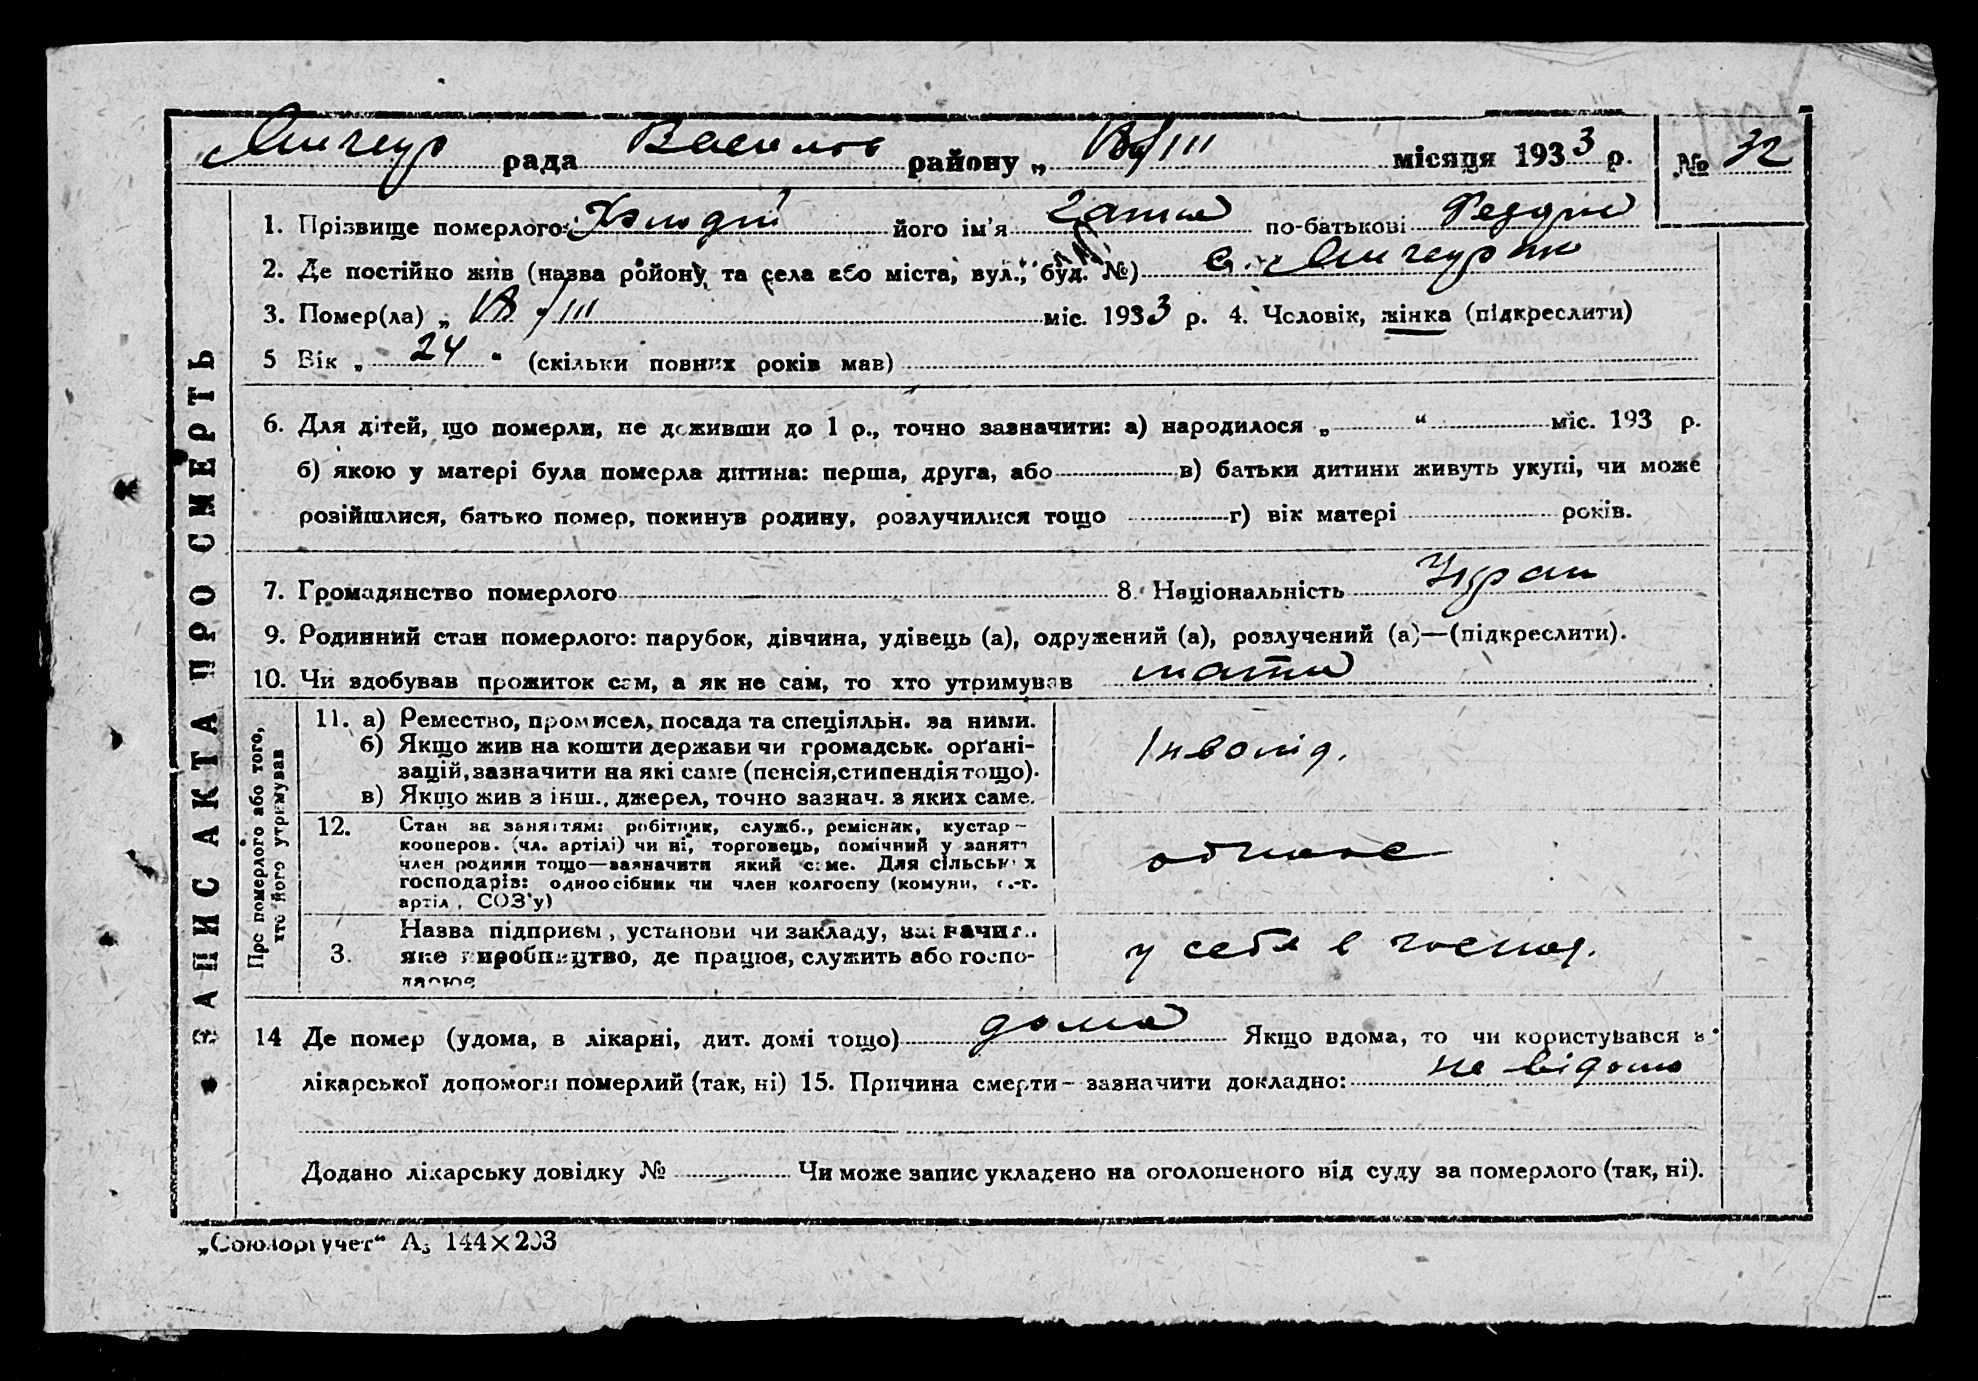 рада Васильк району „ /III місяця 1933 р. № 32
1. Прізвище померлого його ім'я по-батькові
2. Де постійно жив (назва району, та села або міста, вул., буд. №) с.
3. Помер(ла) „ /III міс. 1933 р. 4. Чоловік, жінка (підкреслити)
5 Вік „ 24 “ (скільки повних років мав)
6. Для дітей, що померли, не доживши до 1 р., точно зазначити: а) народилося „ “ міс. 193 р.
б) якою у матері була померла дитина: перша, друга, або в) батьки дитини живуть укупі, чи може
розійшлися, батько помер, покинув родину, розлучилися тощо г) вік матері років.
7. Громадянство померлого 8. Національність Укра
9. Родинний стан померлого: парубок, дівчина, удівець (а), одружений (а), розлучений (а)—(підкреслити).
10. Чи здобував прожиток сам, а як не сам, то хто утримував мати
Про померлого або того,
хто його утримував
11. а) Ремество, промисел, посада та спеціяльн. за ними.
б) Якщо жив на кошти держави чи громадськ. орґані-
зацій, зазначити на які саме (пенсія, стипендія тощо).
в) Якщо жив з інш., джерел, точно зазнач. з яких саме.
Інвалід.
12. Стан за заняттям: робітник, служб., ремісник, кустар-
кооперов. (чл. артілі) чи ні, торговець, помічний у занятт
член родини тощо—зазначити який саме. Для сільськ х
господарів: одноосібник чи член колгоспу (комуни, с.-г.
артіл , СОЗ'у)
3. Назва підприєм , установи чи закладу, зазначит..
яке виробництво, де працює, служить або госпо-
дарює
у себе в господ.
14 Де помер (удома, в лікарні, дит. домі тощо) дома Якщо вдома, то чи користувався з
лікарської допомоги померлий (так, ні) 15. Причина смерти – зазначити докладно: не відомо
Додано лікарську довідку № Чи може запис укладено на оголошеного від суду за померлого (так, ні).
ЗАПИС АКТА ПРО СМЕРТЬ
„Союзоргучет“ А₅ 144×203